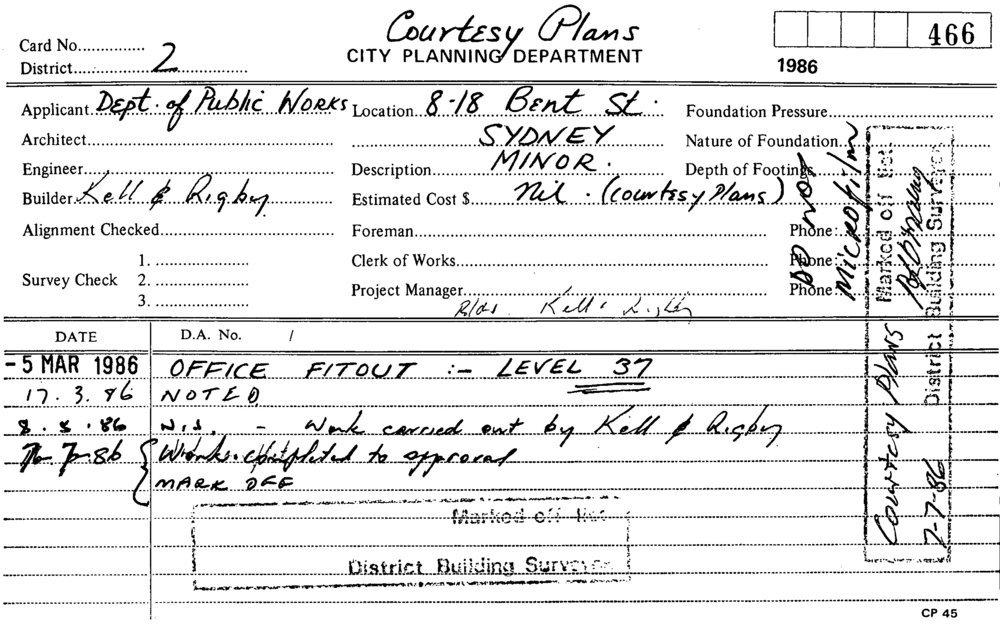 Courtesy Plans
Card No...............
CITY PLANNING DEPARTMENT
466
District 2
1986
Applicant Dept. of Public Works
Location 8-18 Bent St.
Foundation Pressure
Architect
SYDNEY
Nature of Foundation
Engineer
Description MINOR.
Depth of Footings
Builder Kell & Rigby
Estimated Cost $ Nil. (courtesy Plans)
Alignment Checked
Foreman
Phone:
1.
Clerk of Works
Phone:
Survey Check 2.
Project Manager
Phone:
3.
Bldr. Kell & Rigby
DO NOT
MICROFILM
Marked off list
District Building Surveyor
Courtesy Plans
7-7-86
DATE D.A. No. /
-5 MAR 1986 OFFICE FITOUT :- LEVEL 37
17.3.86 NOTED
8.5.86 N.S. - Work carried out by Kell & Rigby
7-7-86 Works completed to approval
MARK OFF
Marked off list
District Building Surveyor
CP 45